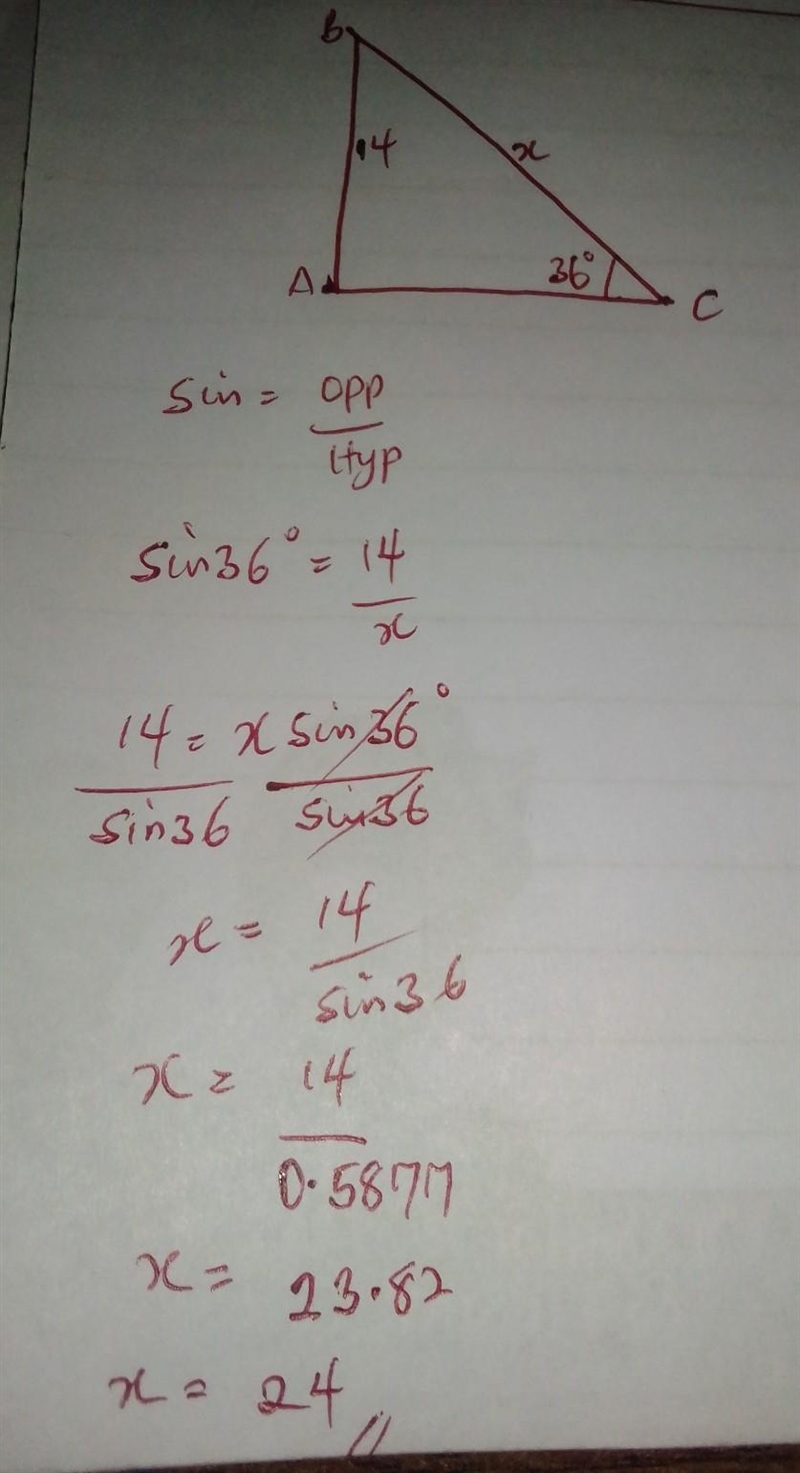 B
14 x
A 36° C
Sin = opp
Hyp
Sin36° = 14
x
14 = x Sin36°
Sin36 Sin36
x = 14
Sin36
x = 14
0.5877
x = 23.82
x = 24 //